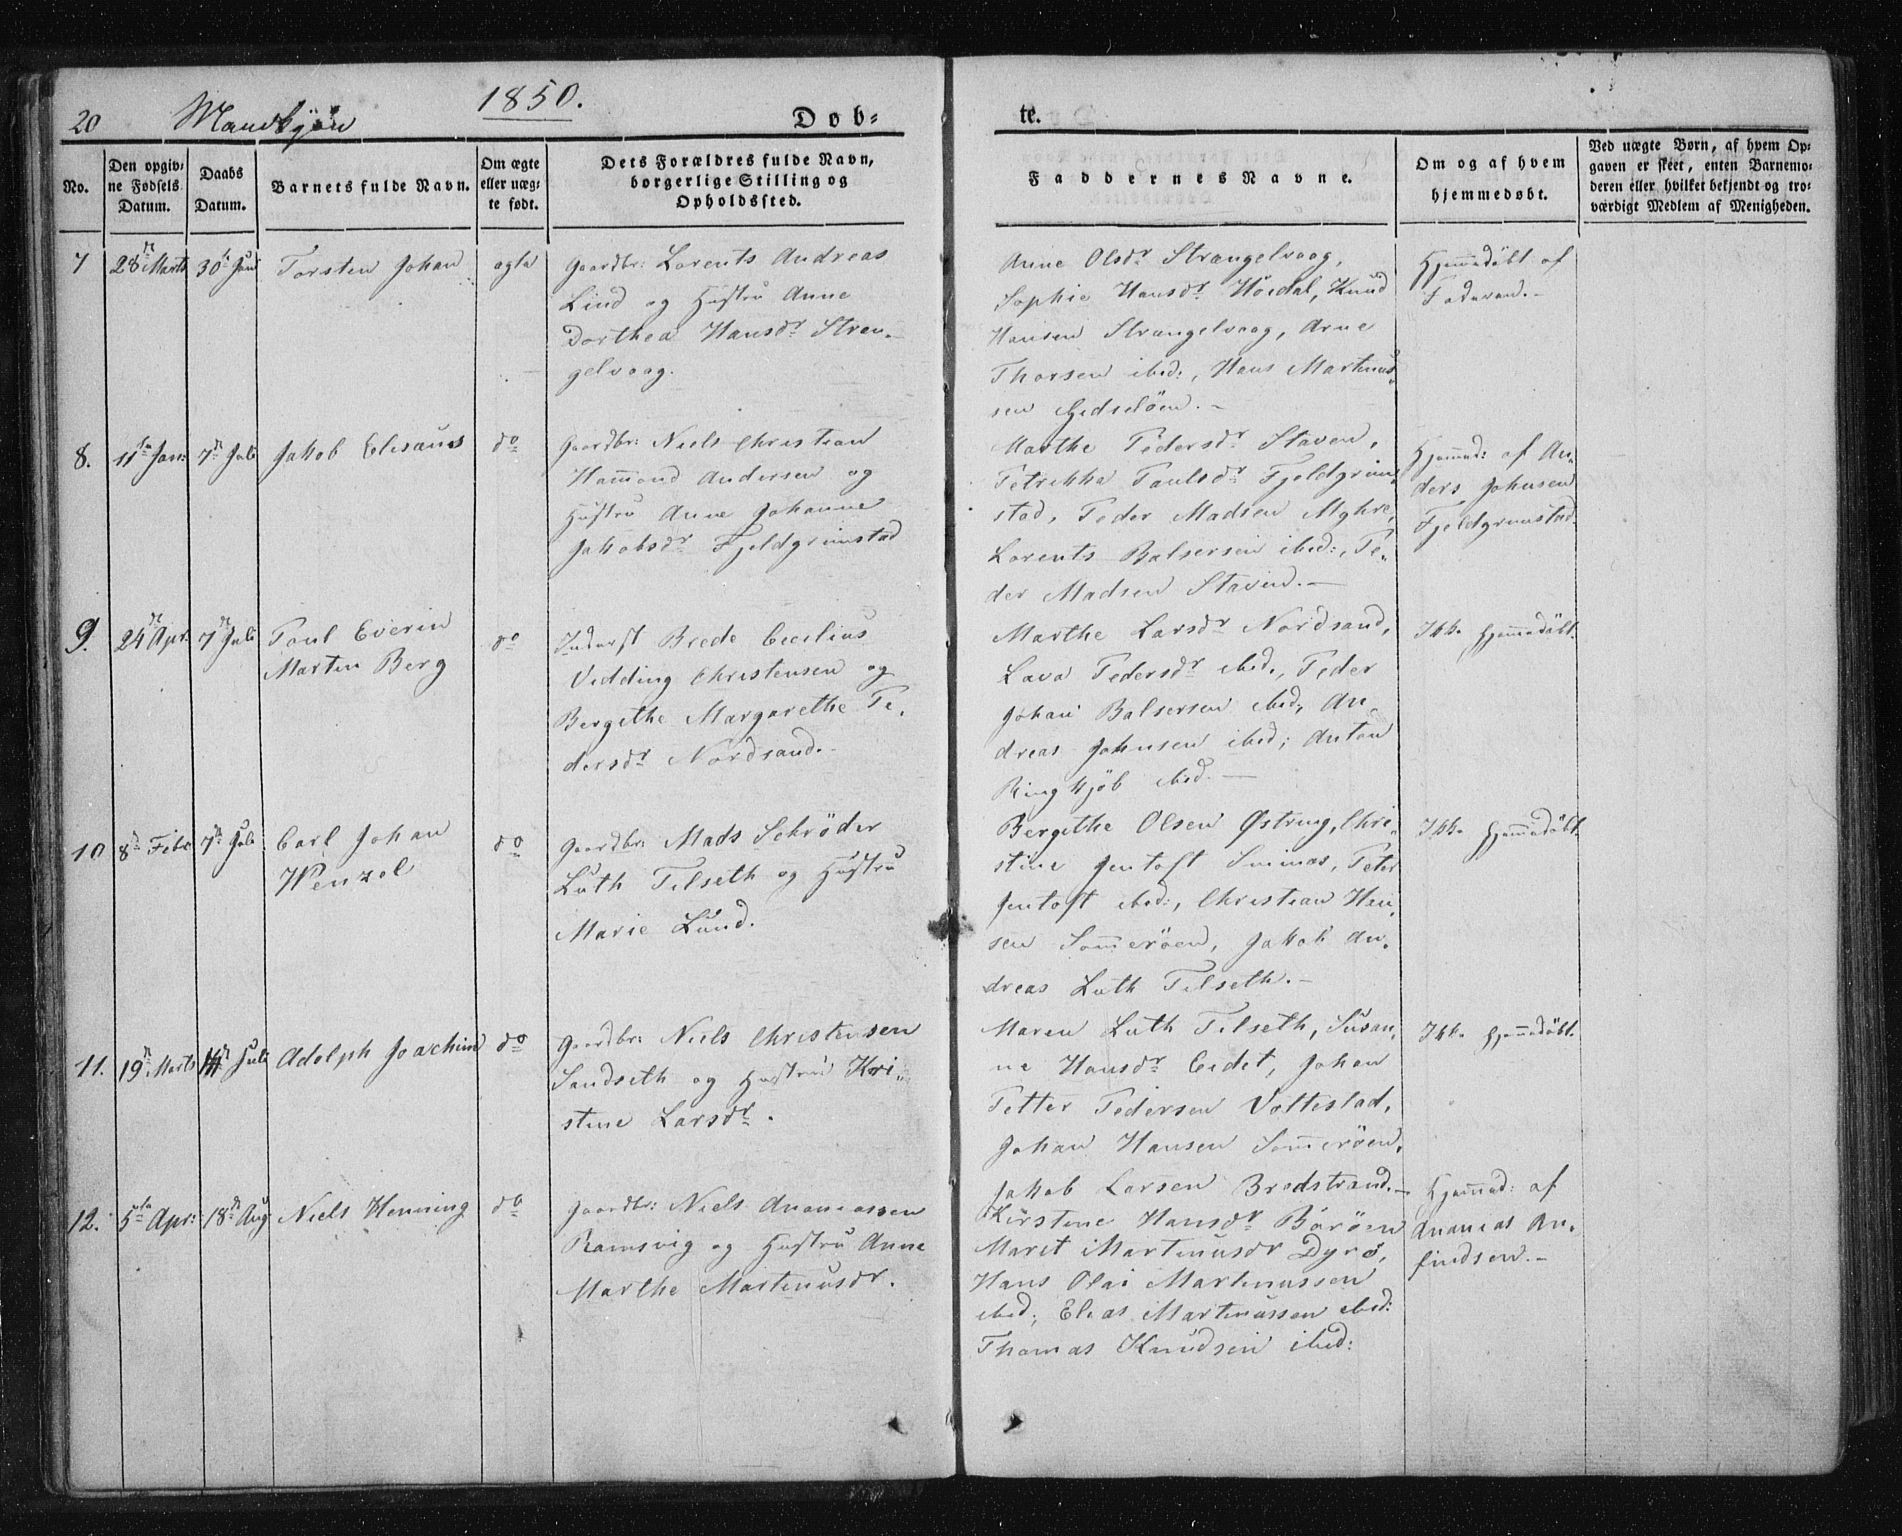 20 Mandkjøn 1850. Døb-
te.
No.
Den opgiv-
ne Fødsels
Datum.
Daabs
Datum.
Barnets fulde Navn.
Om ægte
eller uæg-
te født.
Dets Forældres fulde Navn,
borgerlige Stilling og
Opholdssted.
Faddernes Navne.
Om og af hvem
hjemmedøbt.
Ved uægte Børn, af hvem Op-
gaven er skeet, enten Barnemo-
deren eller hvilket bekjendt og tro-
værdigt Medlem af Menigheden.
7 28de Marts 30te Juni Torsten Johan ægte
Gaardbr: Lorents Andreas
Lind og Hustru Anne
Dorthea Hansdr Stren-
gelvaag.
Anne Olsdr Strængelvaag,
Sophie Hansdr Høidal, Knud
Hansen Strængelvaag, Arne
Thorsen ibid:, Hans Martinus-
sen Gidseløen.-
Hjemmedøbt af
Faderen.-
8. 11te Jan: 7de Juli Jakob Elisæus do
Gaardbr: Niels Christian
Hammond Andersen og
Hustru Anne Johanne
Jakobsdr Fjeldgrimstad
Marthe Pedersdr Staven,
Petrikka Paulsdr Fjeldgrim-
stad, Peder Madsen Myhre,
Lorents Balsersen ibid:, Pe-
der Madsen Staven.-
Hjemmed: af An-
ders Johnsen
Fjeldgrimstad
9. 24de Apr. 7de Juli Poul Everin
Marten Berg do
Inderst Brede Cecilius
Vedding Christensen og
Bergithe Margarethe Pe-
dersdr Nordsand.-
Marthe Larsdr Nordsand,
Lava Pedersdr ibid., Peder
Johan Balsersen ibid, An-
dreas Johnsen ibid; Anton
Ringkjøb ibid.-
Ikke hjemmedøbt.
10 8de Febr 7de Juli Carl Johan
Wenzel do
Gaardbr: Mads Schrøder
Luth Tilseth og Hustru
Marie Lund.
Bergithe Olsen Østring, Chri-
stine Jentoft Sminæs, Peter
Jentoft ibid:, Christian Han-
sen Sommerøen, Jakob An-
dreas Luth Tilseth.-
Ikke hjemmedøbt.
11. 19de Marts 14de Juli Adolph Joachim do
Gaardbr: Niels Christensen
Sandseth og Hustru Kri-
stine Larsdr.
Maren Luth Tilseth, Susan-
ne Hansdr Eidet, Johan
Petter Pedersen Vottestad,
Johan Hansen Sommerøen,
Jakob Larsen Bredstrand.-
Ikke hjemmedøbt.
12. 5te Apr: 18de Aug Niels Henning do
Gaardbr: Niels Ananiassen
Ramsvig og Hustru Anne
Marthe Martinusdr.
Kirstine Hansdr Barøen
Maret Martinusdr Dyrø,
Hans Olai Martinussen
ibid; Elias Martinussen ibid:
Thomas Knudsen ibid:
Hjemmed: af
Ananias An-
findsen.-